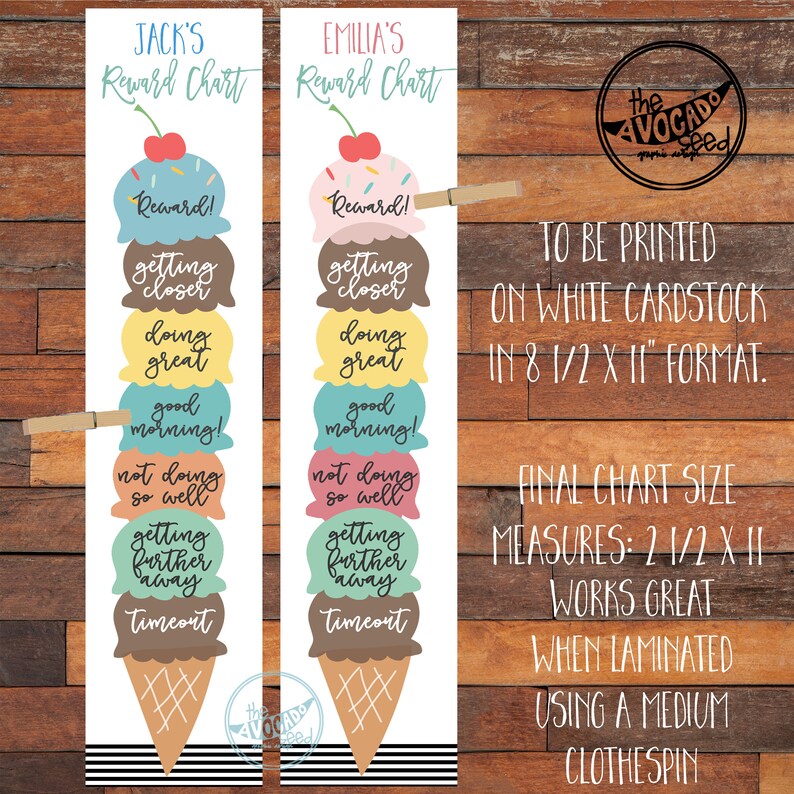 JACK'S
Reward Chart
Reward!
getting
closer
doing
great
good
morning!
not doing
so well
getting
further
away
timeout
EMILIA'S
Reward Chart
Reward!
getting
closer
doing
great
good
morning!
not doing
so well
getting
further
away
timeout
the
AVOCADO
seed
graphic design
TO BE PRINTED
ON WHITE CARDSTOCK
IN 8 1/2 X 11" FORMAT.
FINAL CHART SIZE
MEASURES: 2 1/2 X 11
WORKS GREAT
WHEN LAMINATED
USING A MEDIUM
CLOTHESPIN
the
AVOCADO
seed
graphic design